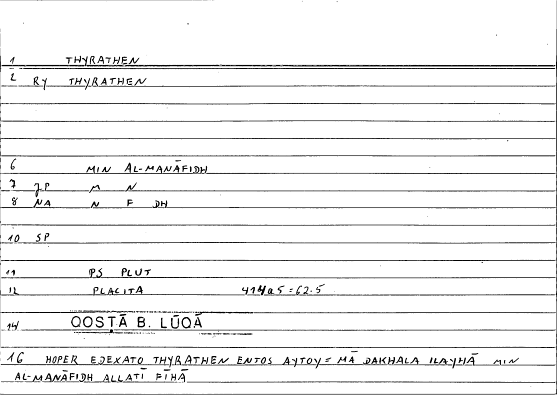 1 THYRATHEN
2 RY THYRATHEN
6 MIN AL-MANĀFIDH
7 JP M N
8 NA N F DH
10 SP
11 PS PLUT
12 PLACITA 414a5=62.5
14 QOSṬĀ B. LŪQĀ
16 HOPER EDEXATO THYRATHEN ENTOS AYTOY = MĀ DAKHALA ILAYHĀ MIN
AL-MANĀFIDH ALLATĪ FĪHĀ